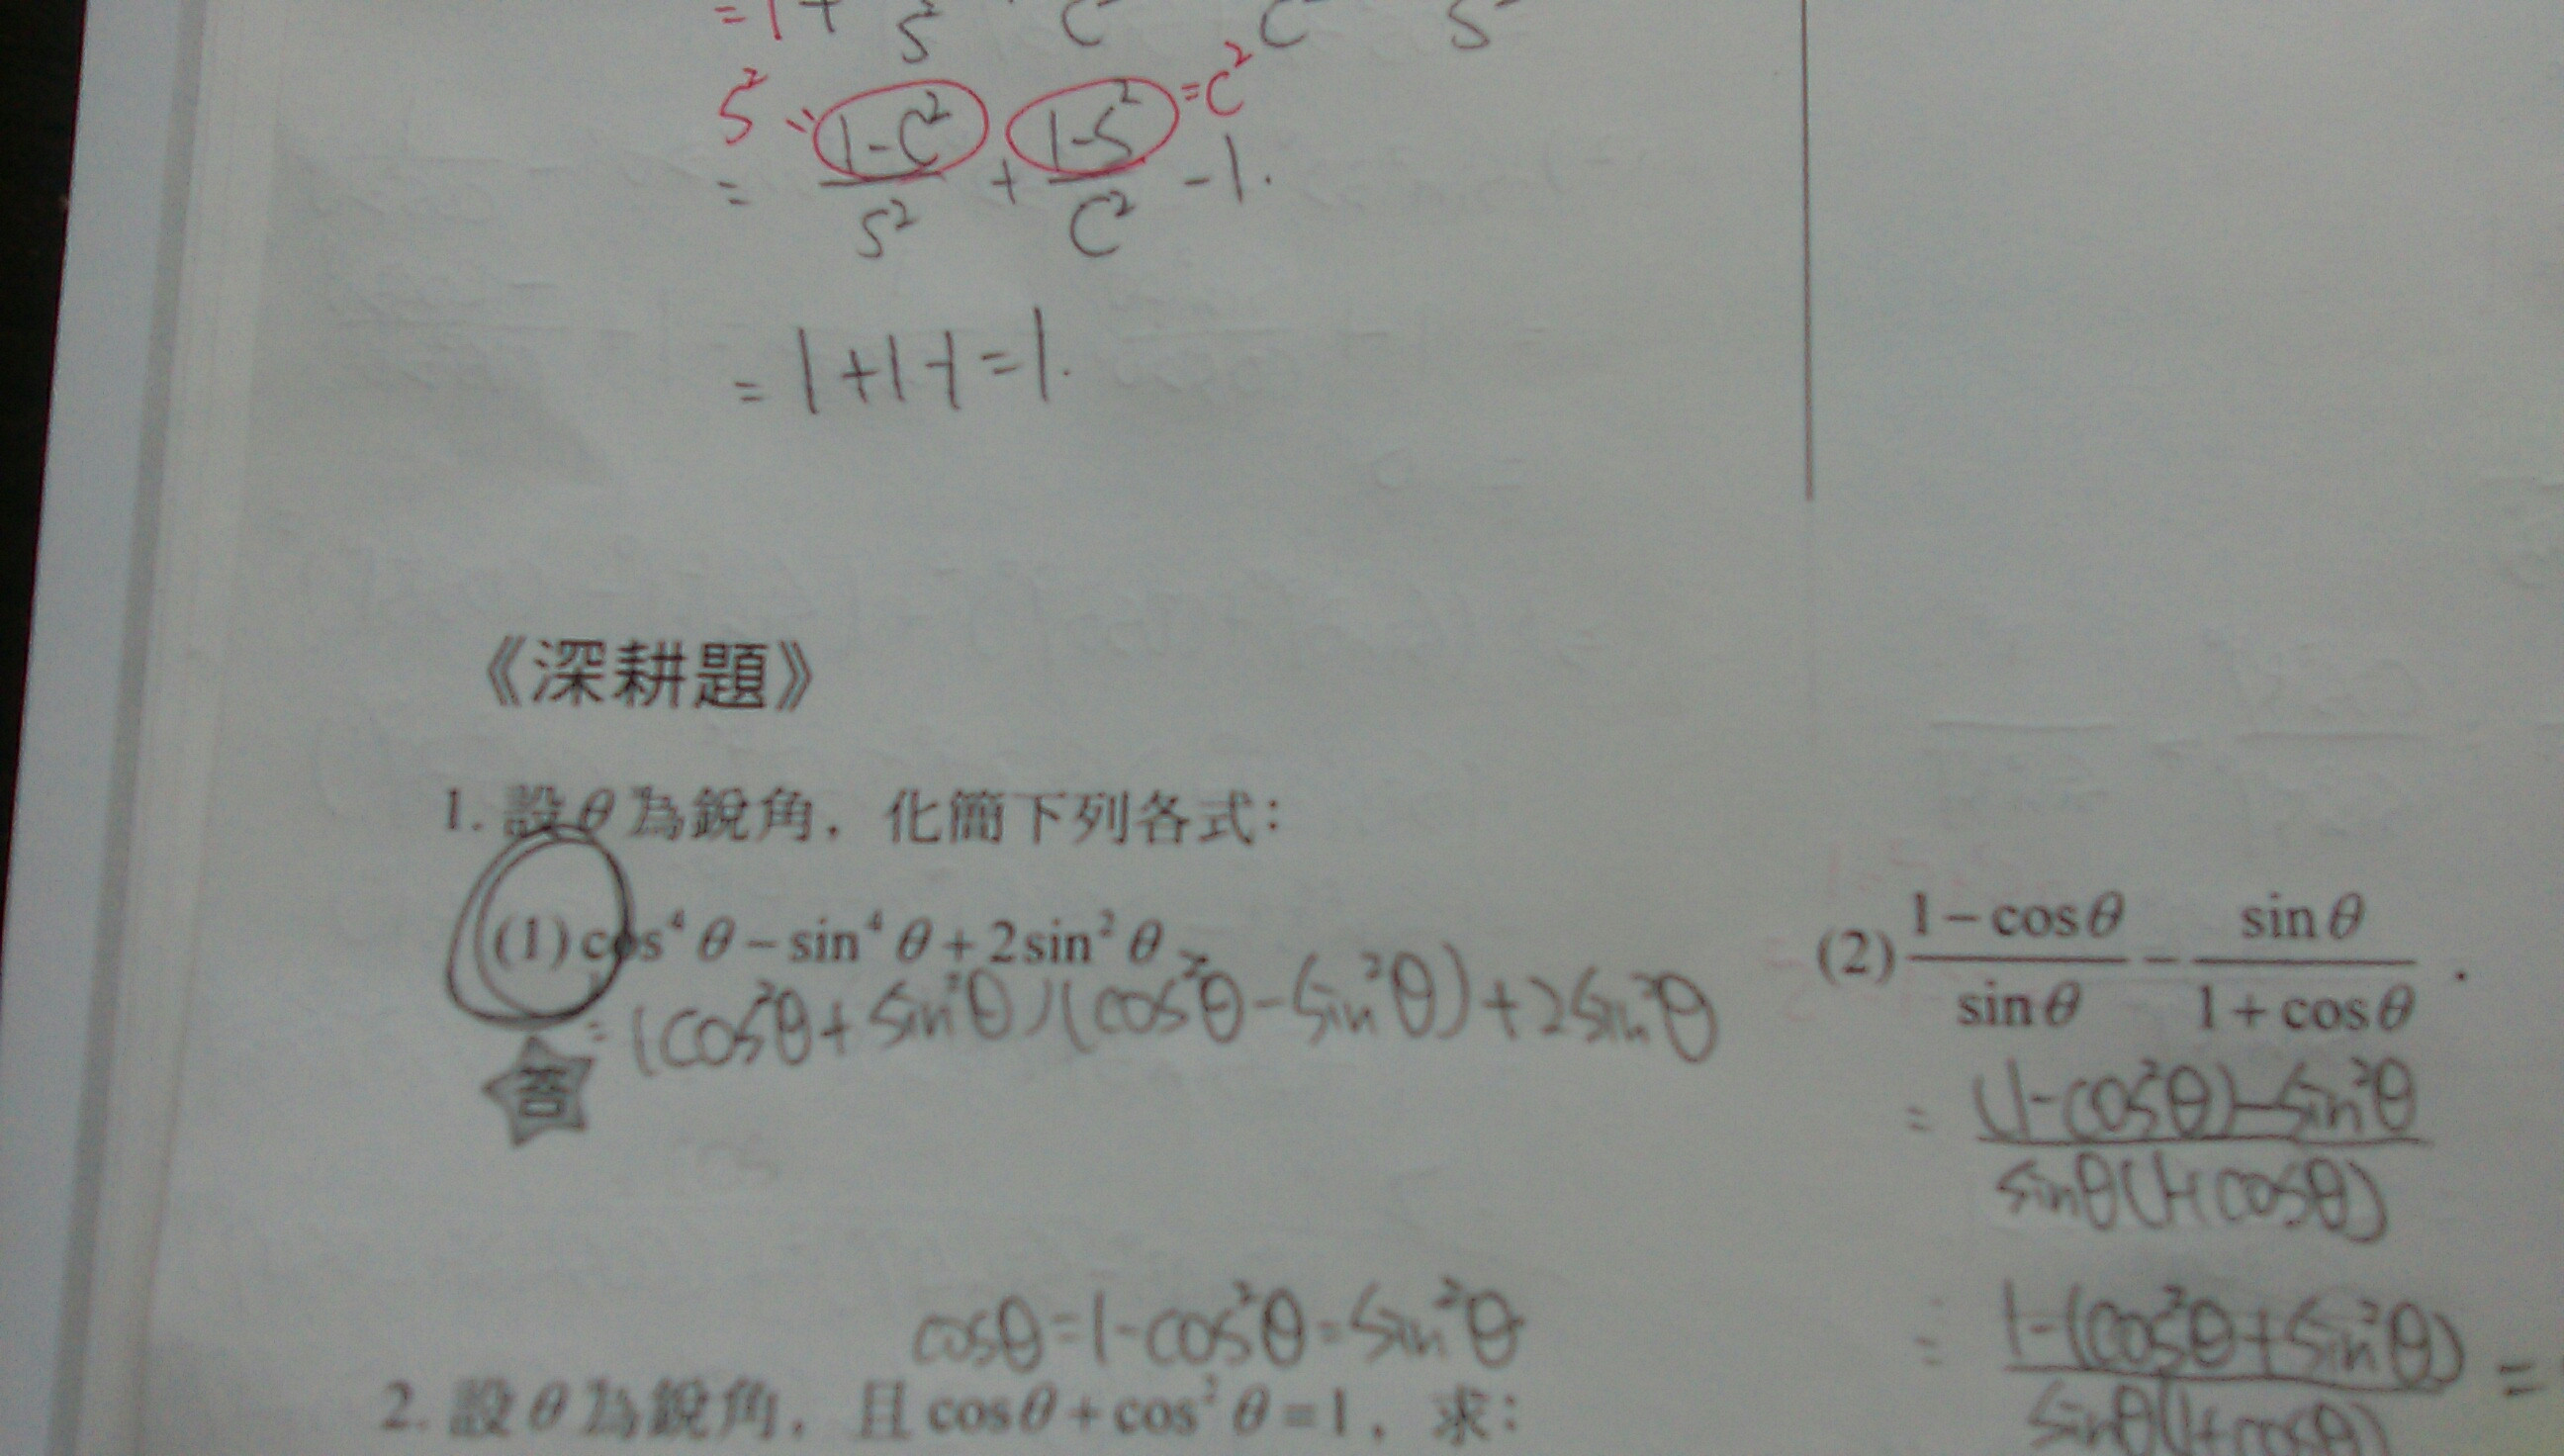 = 1 +
S² = 1-C² / S² + 1-S² = C² / C² - 1.
= 1+1-1=1.
《深耕題》
1. 設θ為銳角，化簡下列各式：
(1) cos⁴θ − sin⁴θ + 2sin²θ
= (cos²θ + sin²θ)(cos²θ − sin²θ) + 2sin²θ
答
(2) 1−cosθ / sinθ − sinθ / 1+cosθ .
= (1−cos²θ)−sin²θ / sinθ(1+cosθ)
= 1−(cos²θ+sin²θ) / sinθ(1+cosθ) =
cosθ = 1−cos²θ = sin²θ
2. 設θ為銳角，且cosθ + cos²θ = 1，求：